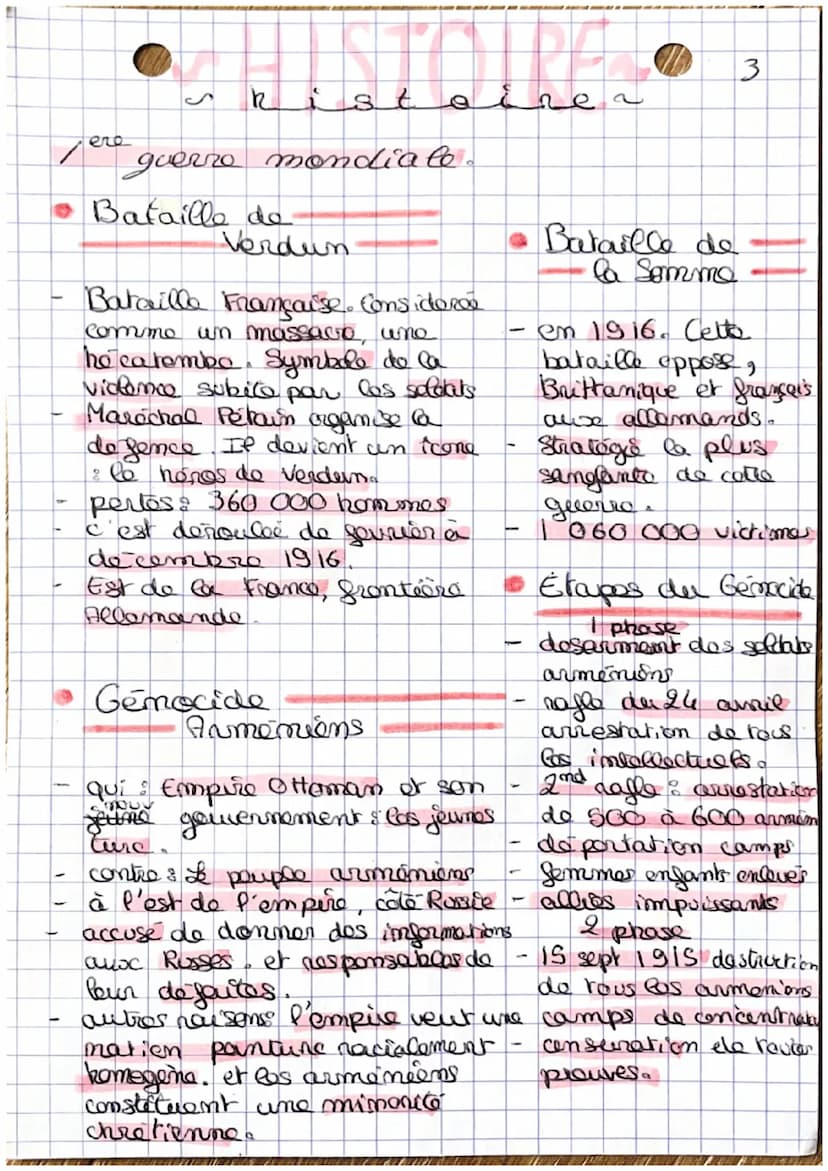 ~ HISTOIRE ~
3
~ histoire ~
1ère guerre mondiale.
• Bataille de
Verdun
- Bataille Française. Considérée
comme un massacre, une
hécatombe. Symbole de la
violence subite par les soldats
- Maréchal Pétain organise la
défence. Il devient un icone
: le héros de Verdun.
- pertes : 360 000 hommes
- c'est déroulée de fevrier à
décembre 1916.
- Est de la France, frontière
Allemande.
• Génocide
Arméniens
- qui : Empire Ottoman et son
nouv
jeune gouvernement : les jeunes
turc.
- contre : le peuple arméniens
- à l'est de l'empire, côté Russie
- accusé de donner des informations
aux Russes. et responsables de
leur défaites.
- autres raisons : l'empire veut une
nation panturc racialement
homogène. et les arméniens
constituent une minorité
chrétienne.
• Bataille de
la Somme
- en 1916. Cette
bataille oppose,
Brittanique et français
aux allemands.
- Stratégie la plus
sanglante de cette
guerre.
- 1 060 000 victimes
• Étapes du Génocide
1 phase
- desarment des soldats
arméniens
- rafle du 24 avril
arrestation de tous
les intellectuels.
- 2nd rafle : arrestation
de 500 à 600 armém
- déportation camps
- femmes enfants enlevés
- alliés impuissants
2 phase
- 15 sept 1915 destruction
de tous les armeniens
camps de concentrat
- censuration de toutes
preuves.